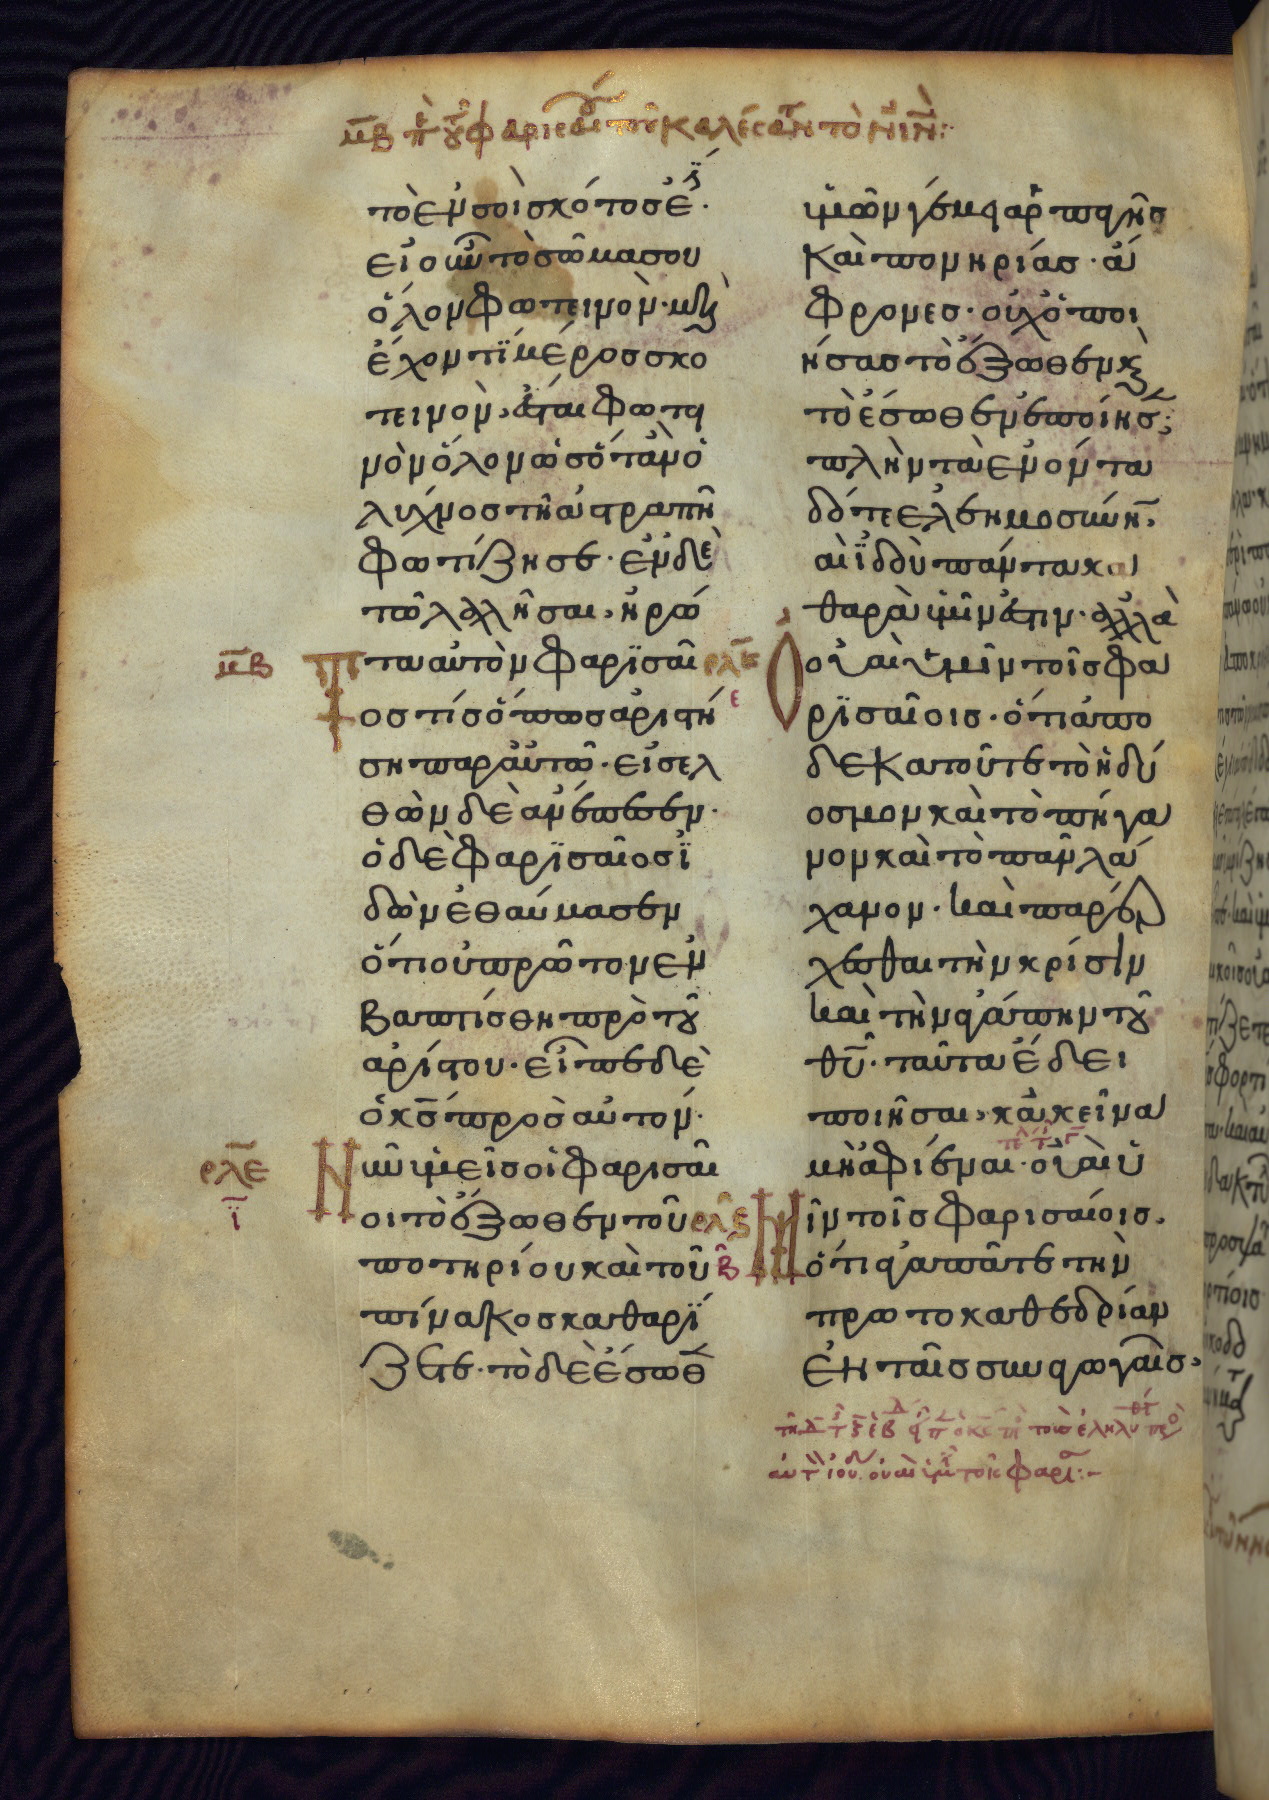 μβ πε του φαρισαι του καλεσαντ τον ιν
τὸ ἐν σοὶ σκότος ἐ
εἰ οὖν τὸ σῶμα σου
ὅλον φωτεινὸν· μὴ
ἔχον τϊ μέρος σκο
τεινὸν, ἔσται φωτει
νὸν ὅλον ὡς ὅταν ὁ
λύχνος τῆ ἀστραπῆ
φωτίζη σε· ἐν δὲ
τῶ λαλῆσαι, ἠρώ
μβ
τα αὐτὸν φαρϊσαῖ
ος τίς ὅπως ἀριστή
ση παρ αὐτῶ· εἰσελ
θὼν δὲ ἀνέπεσεν·
ὁ δὲ φαρϊσαῖος ϊ
δὼν ἐθαύμασεν
ὅτι οὐ πρῶτον ἐ
βαπτίσθη πρὸ τοῦ
ἀρίστου· εἶπε δὲ
ὁ κς πρὸς αὐτόν·
ρλε
ι
Νῦν ὑμεῖς οἱ φαρισαῖ
οι τὸ ἔξωθεν τοῦ
ποτηρίου καὶ τοῦ
πίνακος καθαρϊ
ζετε· τὸ δὲ ἔσωθ
ὑμῶν γέμει ἁρπαγῆς
καὶ πονηρίας· ἄ
φρονες· οὐχ ὁ ποι
ήσας τὸ ἔξωθεν κ
τὸ ἔσωθεν ἐποίησ;
πλὴν τὰ ἐνόντα
δότε ἐλεημοσύν·
καὶ ϊδοὺ πάντα κα
θαρὰ ὑμῖν ἐστιν· ἀλλὰ
ε
οὐαὶ ὑμῖν τοῖς φα
ρϊσαίοις· ὅτι ἀπο
δεκατοῦτε τὸ ἡδύ
οσμον καὶ τὸ πήγα
νον καὶ τὸ πᾶν λά
χανον· καὶ παρέρ
χεσθαι τὴν κρίσιν
καὶ τὴν ἀγάπην τοῦ
θυ· ταῦτα ἔδει
ποιῆσαι, κἀκεῖνα
μὴ ἀφιέναι· οὐαὶ ὑ
ρλς
μῖν τοῖς φαρισαίοις,
β
ὅτι ἀγαπᾶτε τὴν
πρωτοκαθεδρίαν
ἐν ταῖς συναγωγαῖς,
τοῖς ἐληλυ
οὐαὶ ὑμῖν τοῖς φαρι:-